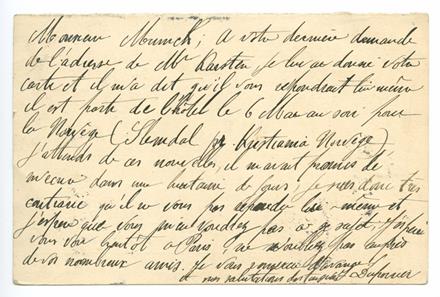 Monsieur Munich; A votre dernière demande
de l'adresse de Mr Karsten je lui ai donné votre
carte et il m'a dit qu'il vous repondrait lui même
il est parti de l'hôtel le 6 Mai au soir pour
la Norvège (Slemdal Kristiania Norvège)
j'attends de ces nouvelles, il m'avait promis de
m'ecrire dans une de jours, je suis donc très
contrarié qu'il ne vous pas repondu lui meme et
j'espère que vous m'en voudrez pas a ce sujet, j'espère
vous voir bientot a Paris
de vos nombreux amis. Je vous
nos salutations